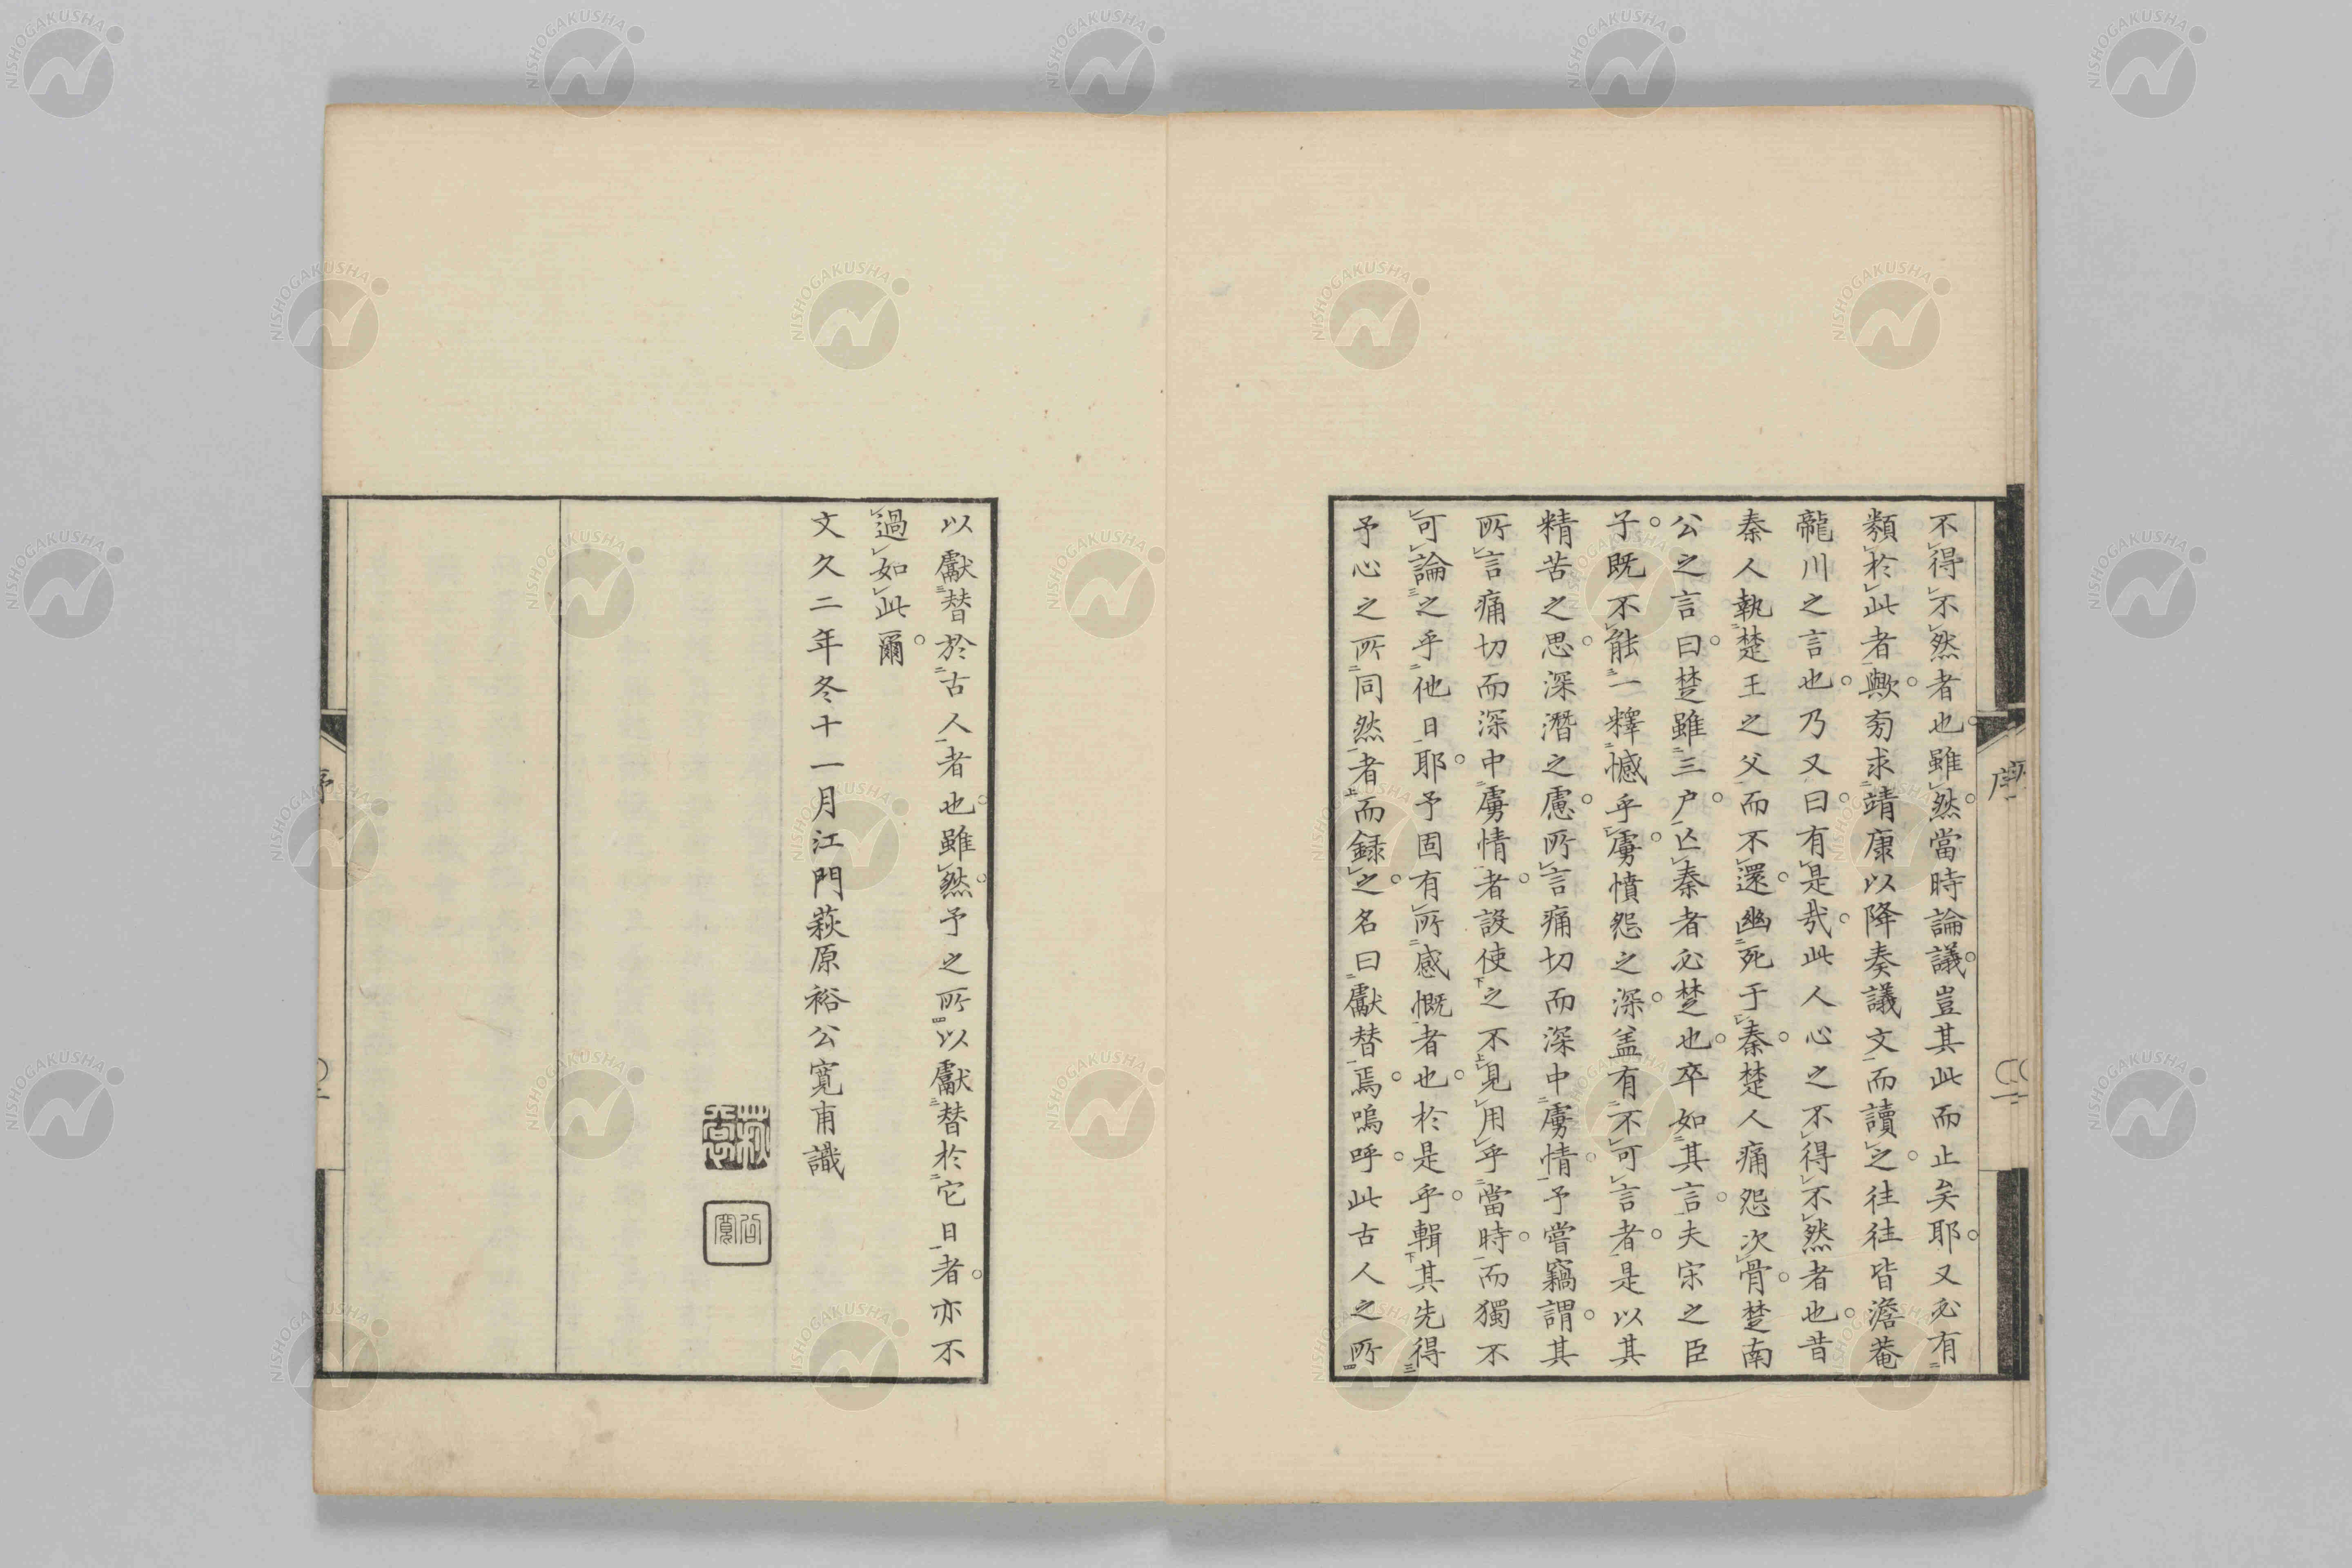 不得不然者也雖然當時論議豈其此而止矣耶又必有
類於此者歟旁求靖康以降奏議文而讀之往往皆澹菴
龍川之言也乃又曰有是哉此人心之不得不然者也昔
秦人執楚王之父而不還幽死于秦楚人痛怨次骨楚南
公之言曰楚雖三戸亡秦者必楚也卒如其言夫宋之臣
子既不能一釋憾乎虜憤怨之深盖有不可言者是以其
精苦之思深潛之慮所言痛切而深中虜情予嘗竊謂其
所言痛切而深中虜情者設使之不見用乎當時而獨不
可論之乎他日耶予固有所感慨者也於是乎輯其先得
予心之所同然者而録之名曰獻替焉嗚呼此古人之所
以獻替於古人者也雖然予之所以獻替於它日者亦不
過如此爾
文久二年冬十一月江門萩原裕公寬甫識
序
NISHOGAKUSHA